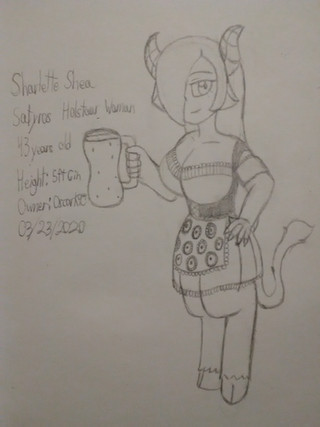 Sharlette Shea
Satyros Holstaur Woman
43 years old
Height: 5ft 6in
Owner:
03/23/2020